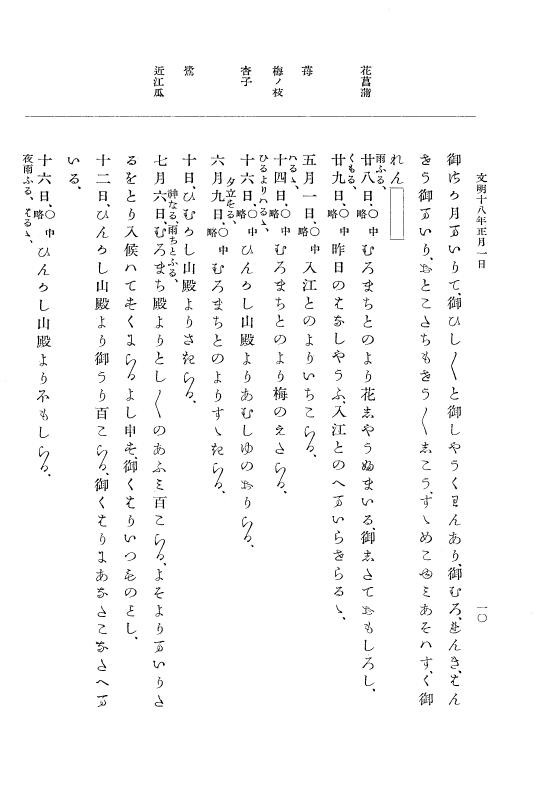 文明十八年正月一日
一〇
花菖蒲
苺
梅ノ枝
杏子
鷺
近江瓜
月まいりて御ひし〳〵と御しやうくわんあり、御むろ、せんき、せん
きう御まいり、おとこたちもきう〳〵しこう、すゝめこゆミあそハす、く御
れん
雨ふる、
廿八日、○中略むろまちとのより花しやうぬまいる、御したておもしろし、
くもる、
廿九日、○中略昨日のはなしやうふ、入江とのへまいらせらるゝ、
五月一日、○中略入江とのよりいちこまいる、
はるゝ、
十四日、○中略むろまちとのより梅のえたまいる、
ひるよりハるゝ、
十六日、○中略ひんかし山殿よりあむしゆのおりまいる、
夕立をる、
六月九日、○中略むろまちとのよりすゝきまいる、
十日、ひむかし山殿よりさきまいる、
神なる、雨ちとふる、
七月六日、むろまち殿よりとし〳〵のあふミ百こまいる、よそよりまいりた
るをとり入候ハてとくまいるよし申、御くはりいつものとし、
十二日、ひんかし山殿より御うり百こまいる、御くはりまあなたこなたへま
いる、
十六日、○中略ひんかし山殿より不もしまいる、
夜雨ふる、はるゝ、